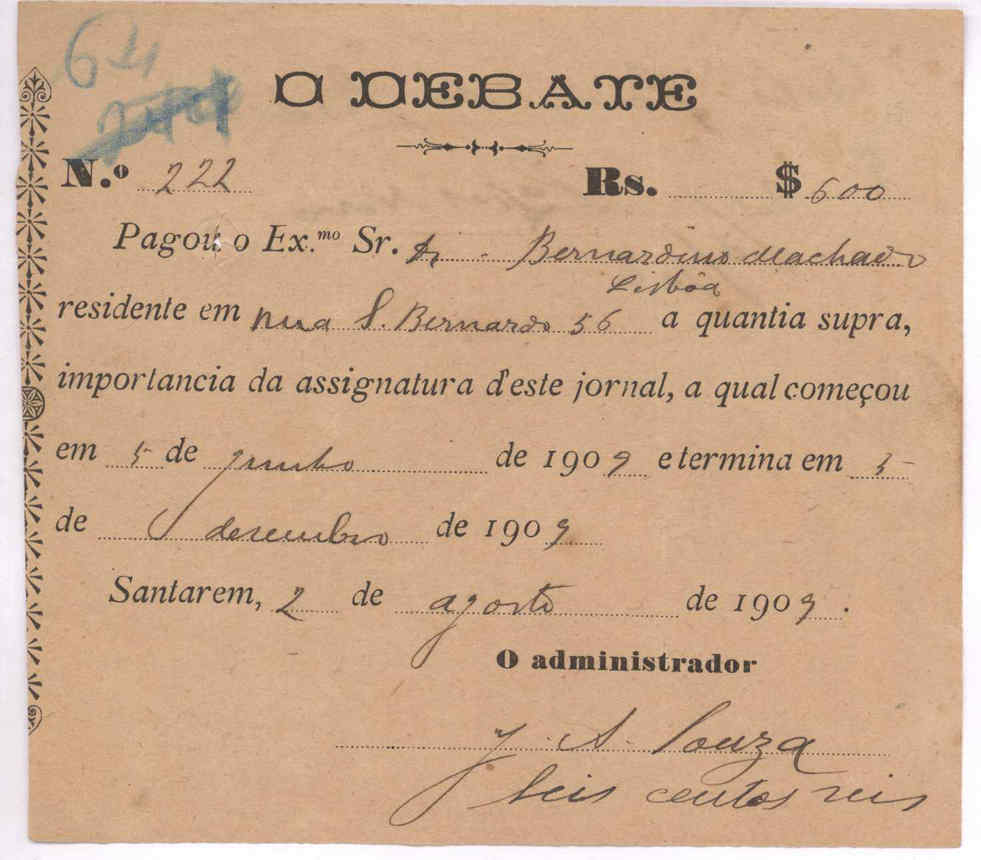 64
O DEBATE
N.º 222 Rs. $600
Pagou o Ex.mo Sr. Dr. Bernardino Machado
Lisbôa
residente em rua S. Bernardo 56 a quantia supra,
importancia da assignatura d'este jornal, a qual começou
em 5 de junho de 1909 e termina em 5
de desembro de 1909
Santarem, 2 de agosto de 1909.
O administrador
J. A. Souza
Seis centos reis